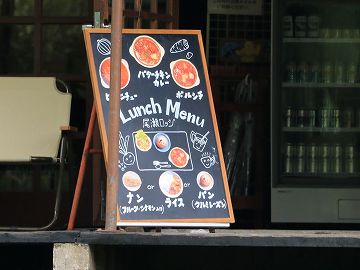 バターチキン
カレー
ビーフシチュー
ボルシチ
Lunch Menu
尾瀬ロッジ
or
or
ナン
ライス
パン
(クルミレーズン)